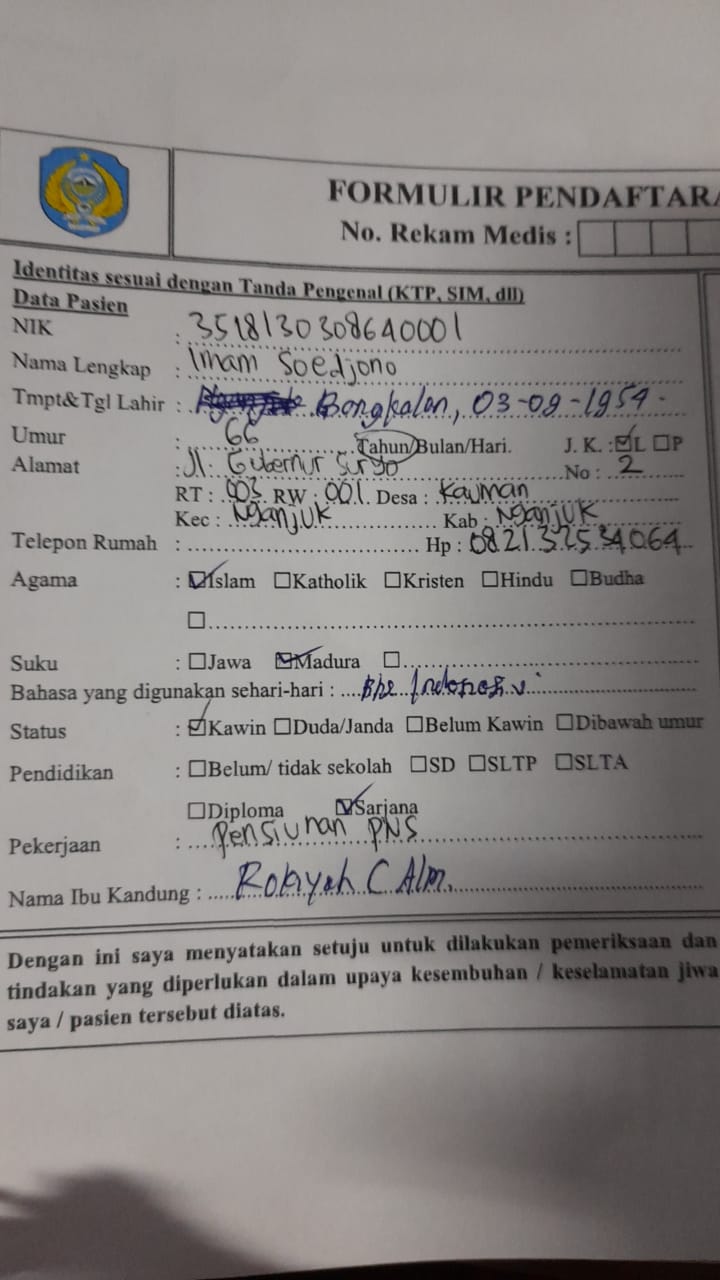 FORMULIR PENDAFTARA
No. Rekam Medis :
Identitas sesuai dengan Tanda Pengenal (KTP, SIM, dll)
Data Pasien
NIK : 3518130308640001
Nama Lengkap : Imam Soedjono
Tmpt&Tgl Lahir : Bangkalan, 03-09-1954.
Umur : 66 Tahun/Bulan/Hari. J. K. : ☑L ☐P
Alamat : Jl. Gubernur Suryo No : 2
RT : 003 RW : 001 Desa : Kauman
Kec : Nganjuk Kab : Nganjuk
Telepon Rumah : Hp : 082132534064
Agama : ☑Islam ☐Katholik ☐Kristen ☐Hindu ☐Budha
☐
Suku : ☐Jawa ☑Madura ☐
Bahasa yang digunakan sehari-hari : Indonesi
Status : ☑Kawin ☐Duda/Janda ☐Belum Kawin ☐Dibawah umur
Pendidikan : ☐Belum/ tidak sekolah ☐SD ☐SLTP ☐SLTA
☐Diploma ☑Sarjana
Pekerjaan : Pensiunan PNS
Nama Ibu Kandung : Rokiyah C Alm.
Dengan ini saya menyatakan setuju untuk dilakukan pemeriksaan dan
tindakan yang diperlukan dalam upaya kesembuhan / keselamatan jiwa
saya / pasien tersebut diatas.